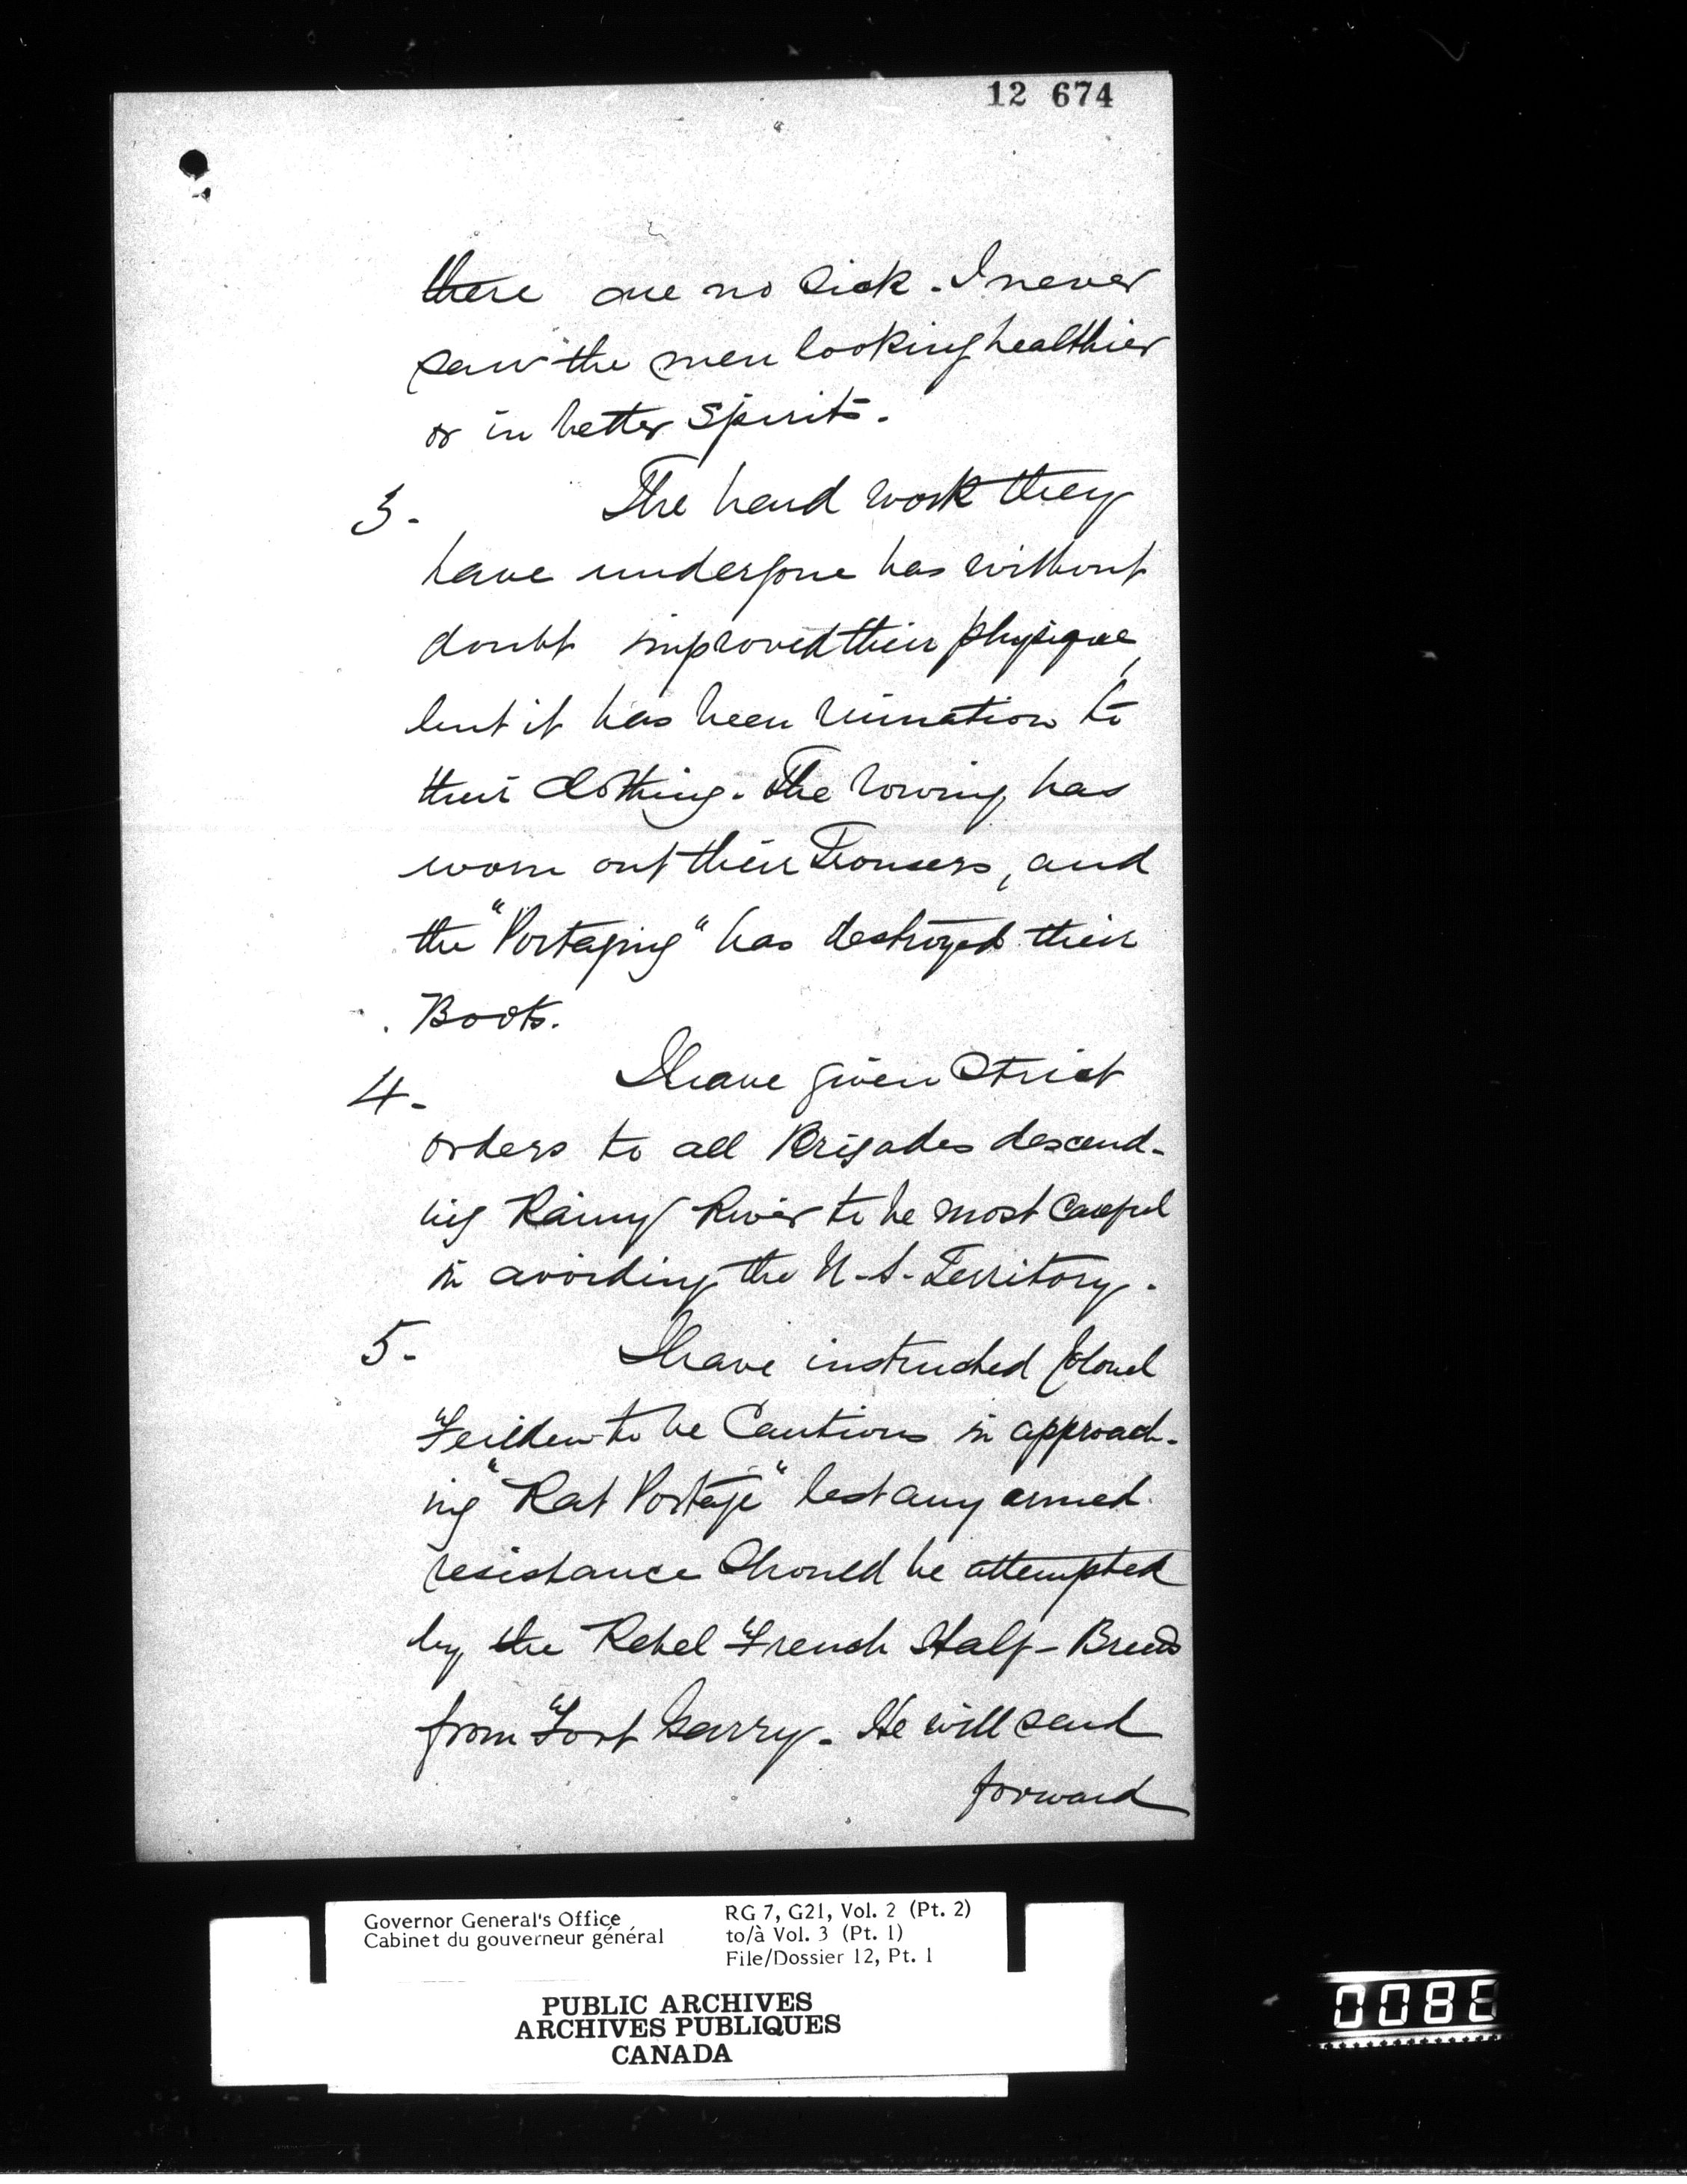 12 674
there are no sick. I never
saw the men looking healthier
or in better spirits.
3. The hard work they
have undergone has without
doubt improved their physique,
but it has been ruination to
their clothing. The rowing has
worn out their Trousers, and
the "Portaging" has destroyed their
Boots.
4. I have given strict
orders to all Brigades descend-
ing Rainy River to be most careful
in avoiding the U.S. Territory.
5. I have instructed Colonel
Feilden to be Cautious in approach-
ing "Rat Portage" lest any armed
resistance should be attempted
by the Rebel French Half-Breeds
from Fort Garry. He will send
forward
Governor General's Office
Cabinet du gouverneur général
RG 7, G21, Vol. 2 (Pt. 2)
to/à Vol. 3 (Pt. 1)
File/Dossier 12, Pt. 1
PUBLIC ARCHIVES
ARCHIVES PUBLIQUES
CANADA